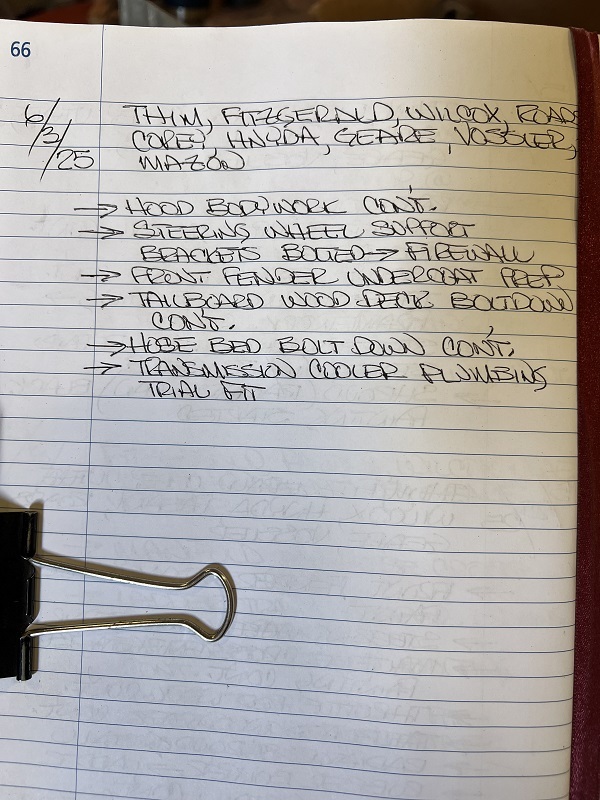 66
6/3/25
THIM, FITZGERALD, WILCOX, ROADS
COREY, HNYDA, GEARE, VOSSLER,
MAZÓN
→ HOOD BODYWORK CON'T.
→ STEERING WHEEL SUPPORT
BRACKETS BOLTED → FIREWALL
→ FRONT FENDER UNDERCOAT PREP
→ TAILBOARD WOOD DECK BOLTDOWN
CON'T.
→ HOSE BED BOLT DOWN CON'T.
→ TRANSMISSION COOLER PLUMBING
TRIAL FIT